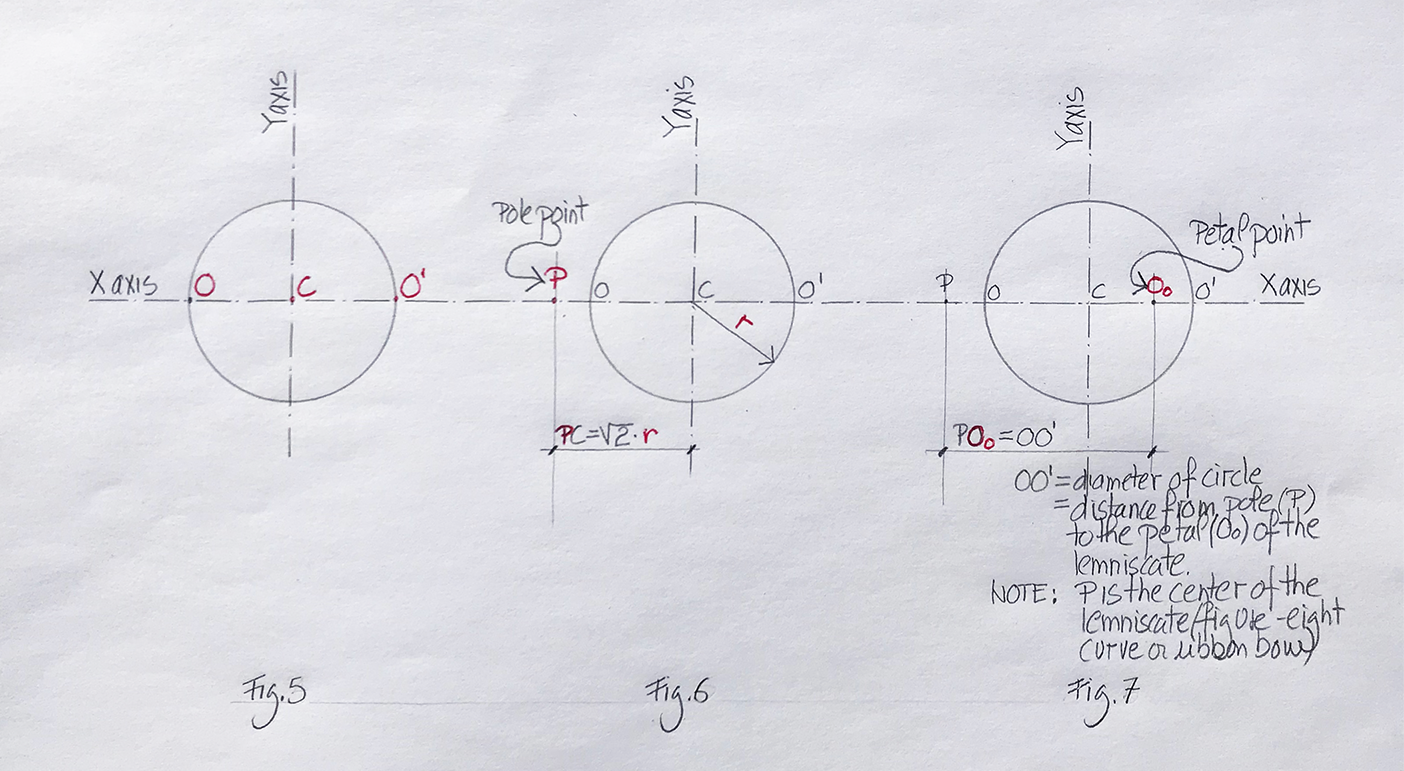 Y axis
X axis
O
C
O'
Fig.5
Y axis
Pole point
P
O
C
O'
r
PC=√2·r
Fig.6
Y axis
Petal point
P
O
C
Oo
O'
X axis
POo=OO'
OO'=diameter of circle
=distance from pole (P)
to the petal (Oo) of the
lemniscate.
NOTE: P is the center of the
lemniscate/figure-eight
curve or ribbon bow)
Fig.7